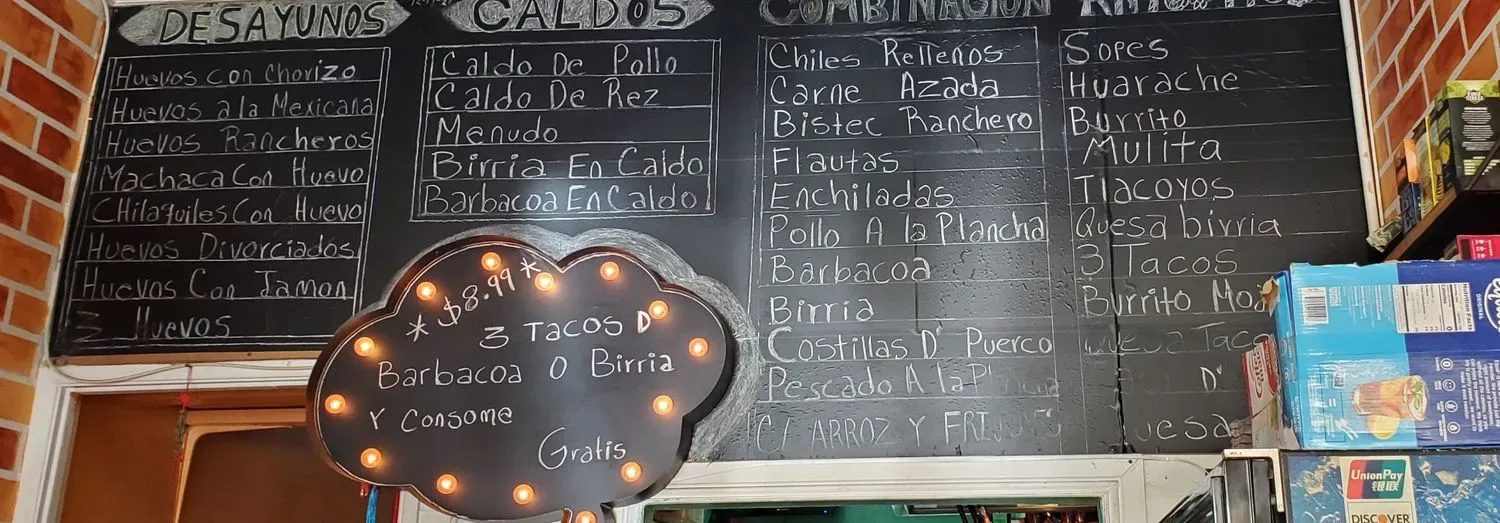 DESAYUNOS
Huevos con Chorizo
Huevos a la Mexicana
Huevos Rancheros
Machaca Con Huevo
CHilaquiles Con Huevo
Huevos Divorciados
Huevos Con Jamon
3 Huevos
CALDOS
Caldo De Pollo
Caldo De Rez
Menudo
Birria En Caldo
Barbacoa En Caldo
* $8.99 *
3 TACOS D'
Barbacoa O Birria
Y Consome
Gratis
COMBINACION
Chiles Rellenos
Carne Azada
Bistec Ranchero
Flautas
Enchiladas
Pollo A la Plancha
Barbacoa
Birria
Costillas D' Puerco
Pescado A la
C/ ARROZ Y
Sopes
Huarache
Burrito
Mulita
Tlacoyos
Quesabirria
3 Tacos
Burrito
D'
UnionPay
银联
DISCOVER